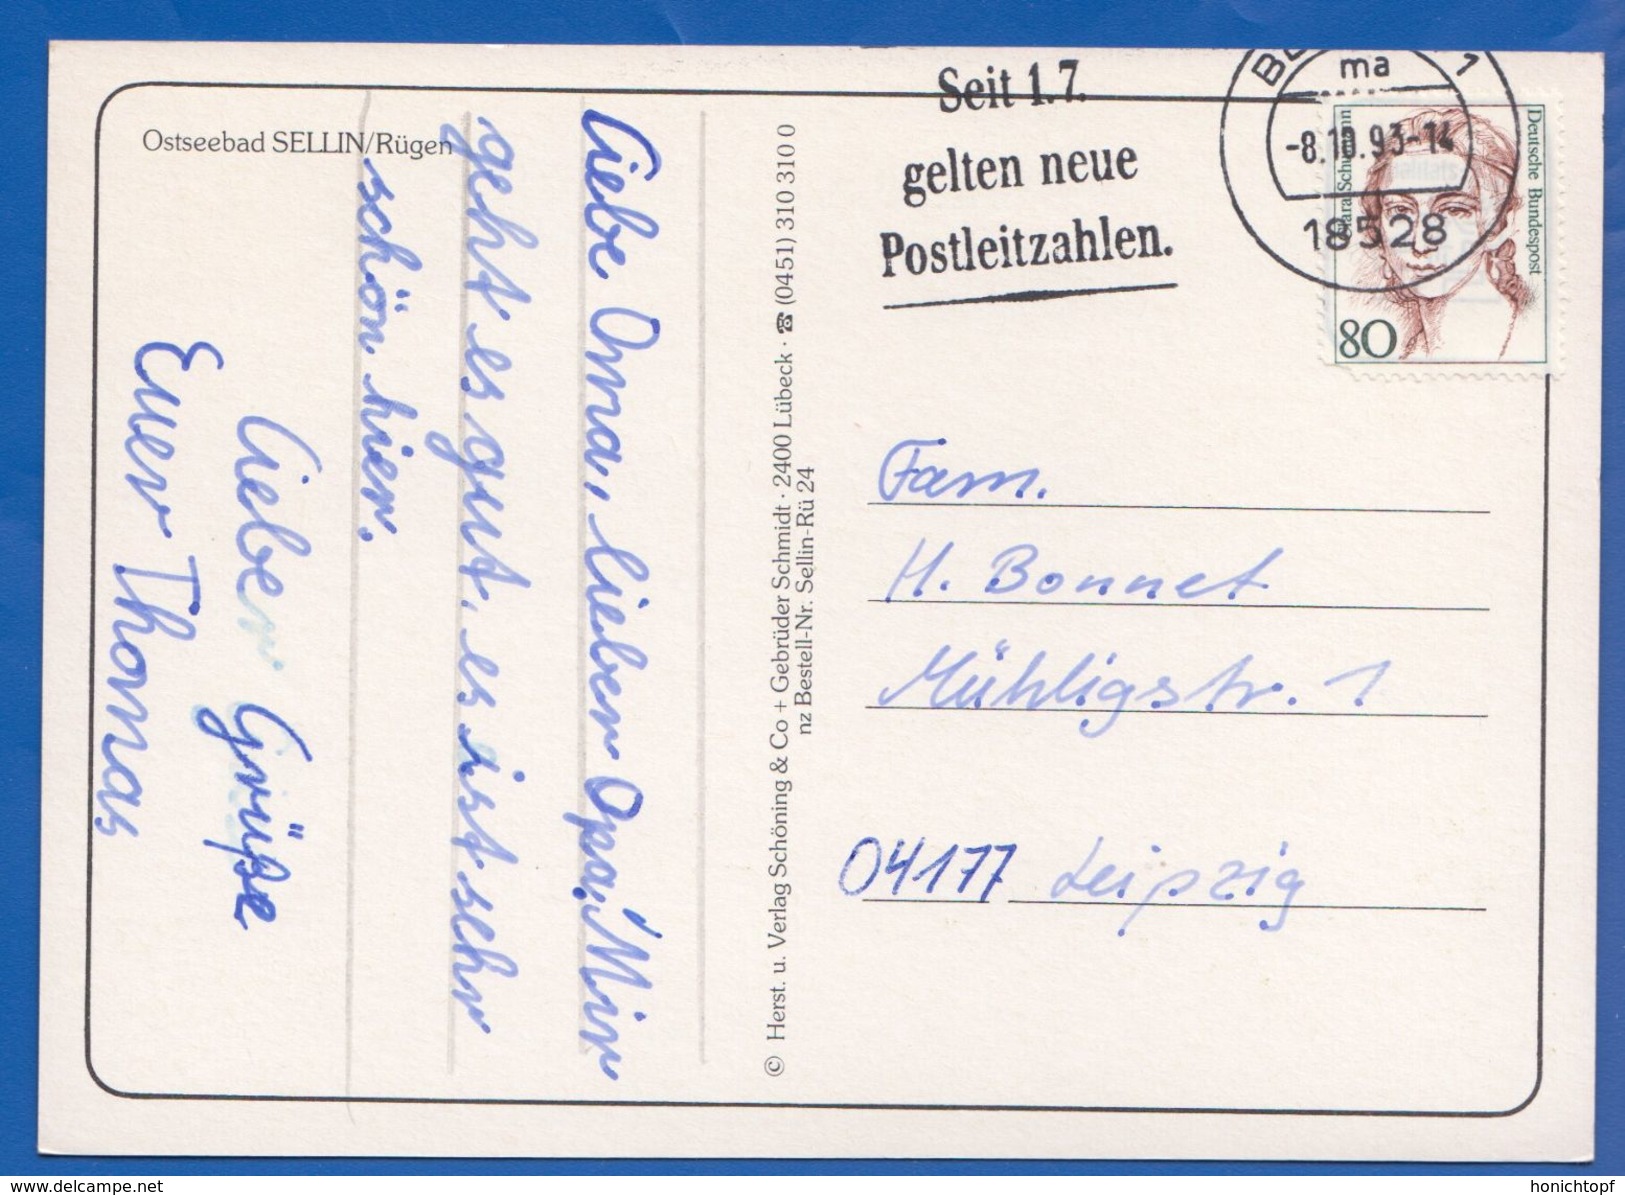 Ostseebad SELLIN/Rügen
Liebe Oma, lieber Opa! Mir
geht es gut. es ist sehr
schön hier.
Lieber Grüße
Euer Thomas
© Herst. u. Verlag Schöning & Co + Gebrüder Schmidt · 2400 Lübeck · ☎ (0451) 310 310 0
nz Bestell-Nr. Sellin-Rü 24
Seit 1.7.
gelten neue
Postleitzahlen.
1
ma
-8.10.93-14
18528
Deutsche Bundespost
Clara Schumann
80
Fam.
H. Bonnet
Mühligstr. 1
04177 Leipzig
www.delcampe.net
honichtopf